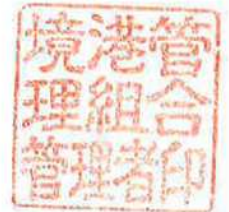 境港管
理組合
管理者印